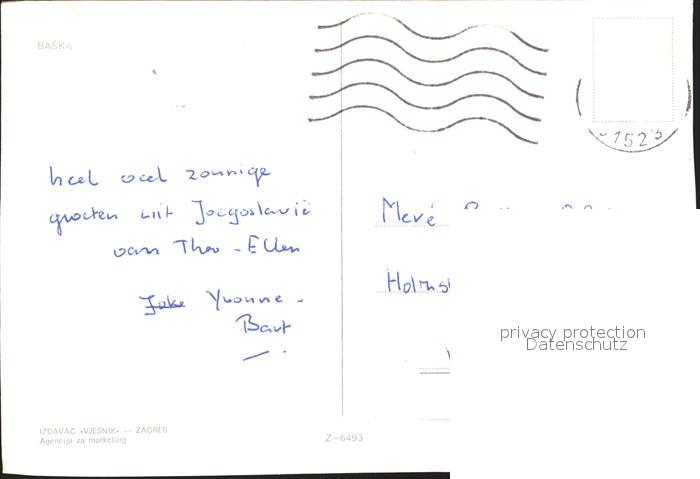 BAŠKA
5152
heel veel zonnige
groeten uit Joegoslavië
van Theo - Ellen
Joke Yvonne -
Bart
Mevé
privacy protection
Datenschutz
IZDAVAČ «VJESNIK» — ZAGREB
Agencija za marketing
Z-6493